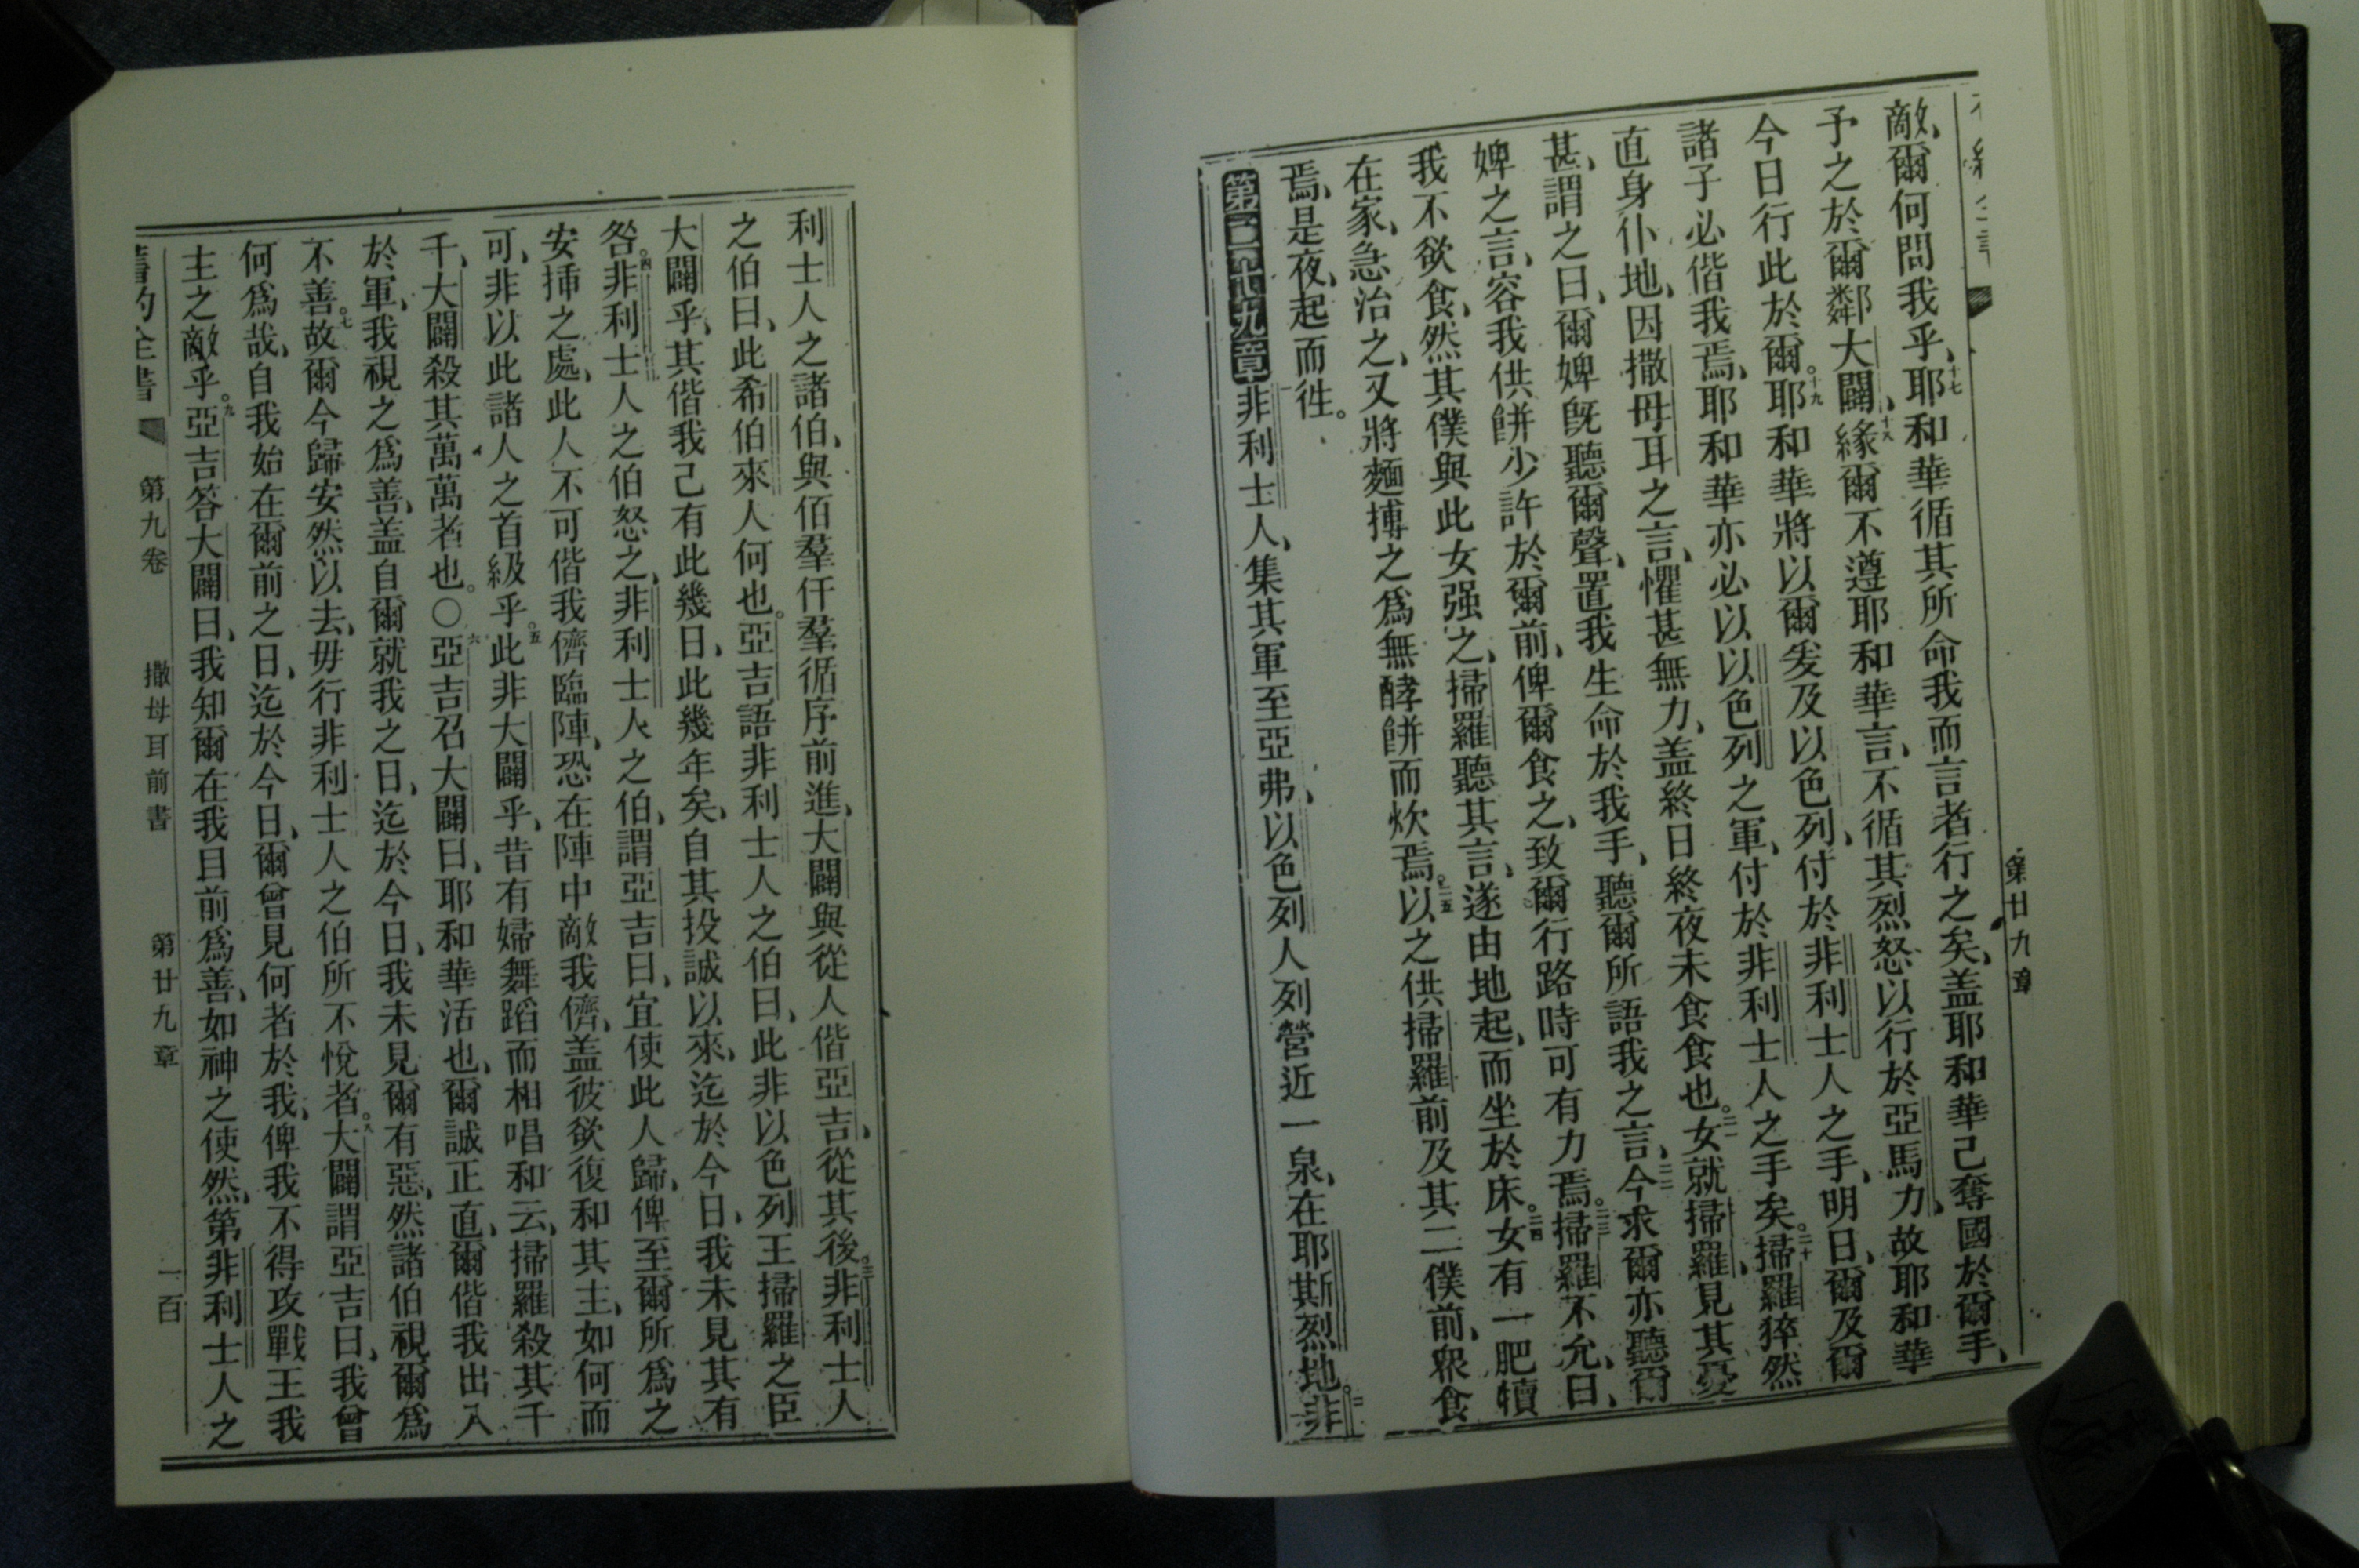 第廿九章
敵、爾何問我乎、十七耶和華循其所命我而言者行之矣、蓋耶和華己奪國於爾手、
予之於爾鄰大闢、十八緣爾不遵耶和華言、不循其烈怒以行於亞馬力、故耶和華
今日行此於爾。十九耶和華將以爾爰及以色列、付於非利士人之手、明日、爾及爾
諸子必偕我焉、耶和華亦必以以色列之軍、付於非利士人之手矣。二十掃羅猝然
直身仆地、因撒母耳之言、懼甚無力、蓋終日終夜未食食也。二一女就掃羅、見其憂
甚、謂之曰、爾婢旣聽爾聲、置我生命於我手、聽爾所語我之言、二二今求爾亦聽爾
婢之言、容我供餅少許於爾前、俾爾食之、致爾行路時可有力焉。二三掃羅不允、曰、
我不欲食、然其僕與此女强之、掃羅聽其言、遂由地起、而坐於床。二四女有一肥犢
在家、急治之、又將麵摶之爲無酵餅而炊焉。二五以之供掃羅前及其二僕前、衆食
焉、是夜、起而徃。
第二十九章非利士人、集其軍至亞弗、以色列人列營近一泉、在耶斯烈地。二非
利士人之諸伯、與佰羣仟羣循序前進、大闢與從人偕亞吉、從其後。三非利士人
之伯曰、此希伯來人何也。亞吉語非利士人之伯曰、此非以色列王掃羅之臣
大闢乎、其偕我己有此幾日、此幾年矣、自其投誠以來、迄於今日、我未見其有
咎。四非利士人之伯怒之、非利士人之伯、謂亞吉曰、宜使此人歸、俾至爾所爲之
安揷之處、此人不可偕我儕臨陣、恐在陣中敵我儕、蓋彼欲復和其主、如何而
可、非以此諸人之首級乎。五此非大闢乎、昔有婦舞蹈而相唱和云、掃羅殺其千
千、大闢殺其萬萬者也。〇六亞吉召大闢曰、耶和華活也、爾誠正直、爾偕我出入
於軍、我視之爲善、蓋自爾就我之日、迄於今日、我未見爾有惡、然諸伯視爾爲
不善。七故爾今歸安然以去、毋行非利士人之伯所不悅者。八大闢謂亞吉曰、我曾
何爲哉、自我始在爾前之日、迄於今日、爾曾見何者於我、俾我不得攻戰王我
主之敵乎。九亞吉答大闢曰、我知爾在我目前爲善、如神之使然、第非利士人之
舊約全書 第九卷 撒母耳前書 第廿九章 一百